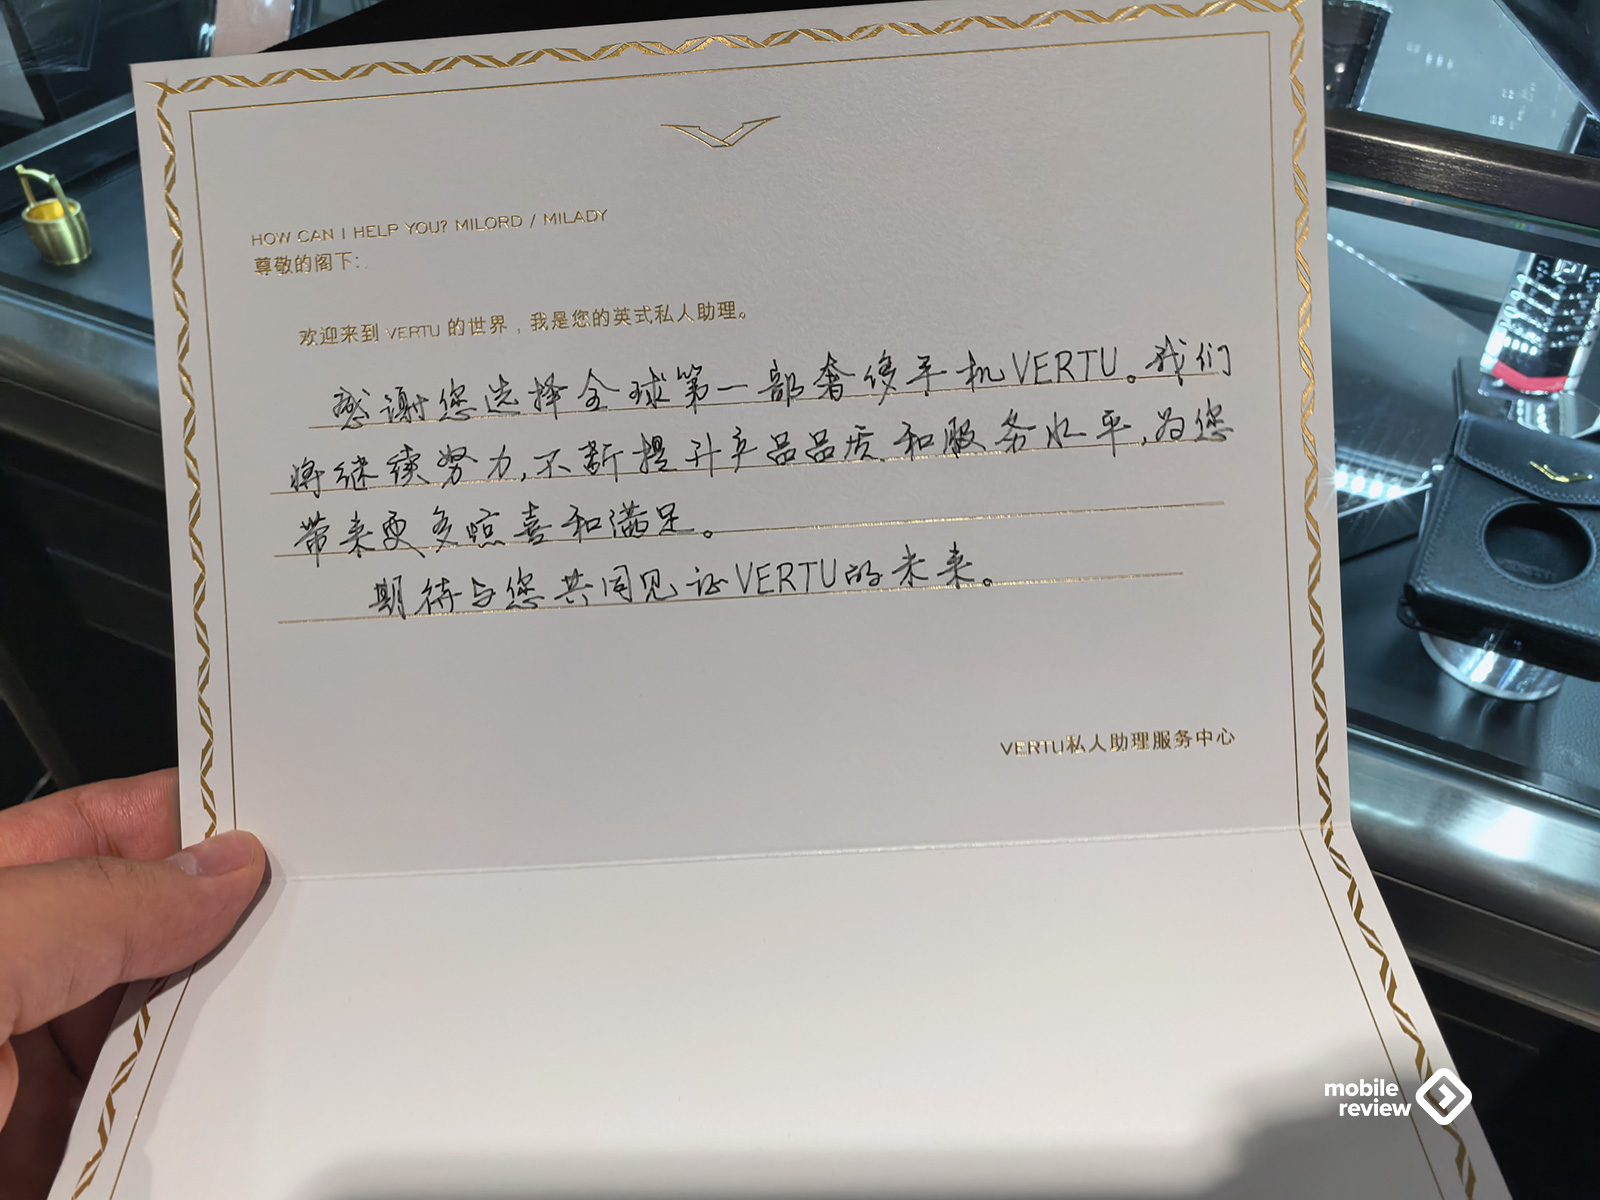 HOW CAN I HELP YOU? MILORD / MILADY
尊敬的阁下:
欢迎来到 VERTU 的世界，我是您的英式私人助理。
感谢您选择全球第一部奢侈手机VERTU。我们
将继续努力,不断提升产品品质和服务水平,为您
带来更多惊喜和满足。
期待与您共同见证VERTU的未来。
VERTU私人助理服务中心
mobile
review